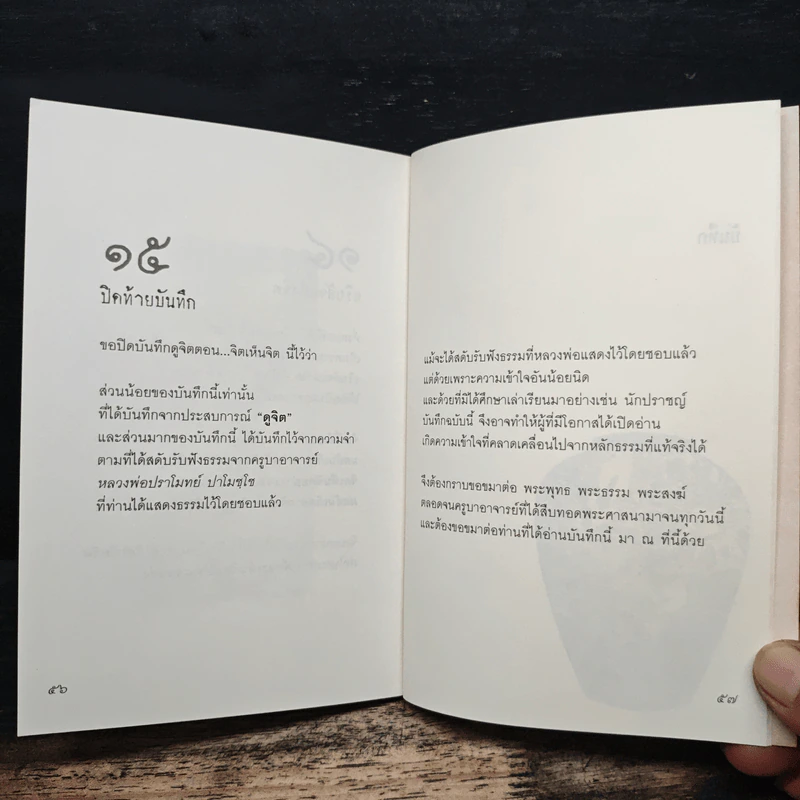 ๑๕
ปิดท้ายบันทึก
ขอปิดบันทึกดูจิตตอน...จิตเห็นจิต นี้ไว้ว่า
ส่วนน้อยของบันทึกนี้เท่านั้น
ที่ได้บันทึกจากประสบการณ์ “ดูจิต”
และส่วนมากของบันทึกนี้ ได้บันทึกไว้จากความจำ
ตามที่ได้สดับรับฟังธรรมจากครูบาอาจารย์
หลวงพ่อปราโมทย์ ปาโมชฺโช
ที่ท่านได้แสดงธรรมไว้โดยชอบแล้ว
๕๖
บันทึก
แม้จะได้สดับรับฟังธรรมที่หลวงพ่อแสดงไว้โดยชอบแล้ว
แต่ด้วยเพราะความเข้าใจอันน้อยนิด
และด้วยที่มิได้ศึกษาเล่าเรียนมาอย่างเช่น นักปราชญ์
บันทึกฉบับนี้ จึงอาจทำให้ผู้ที่มีโอกาสได้เปิดอ่าน
เกิดความเข้าใจที่คลาดเคลื่อนไปจากหลักธรรมที่แท้จริงได้
จึงต้องกราบขอขมาต่อ พระพุทธ พระธรรม พระสงฆ์
ตลอดจนครูบาอาจารย์ที่ได้สืบทอดพระศาสนามาจนทุกวันนี้
และต้องขอขมาต่อท่านที่ได้อ่านบันทึกนี้ มา ณ ที่นี้ด้วย
๕๗